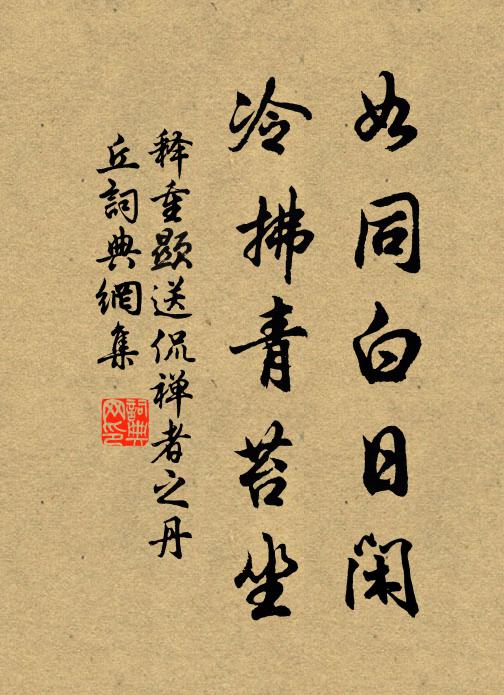 如同白日闲
冷拂青苔坐
释重显送侃禅者之丹
丘詞典網集
詞典
网印